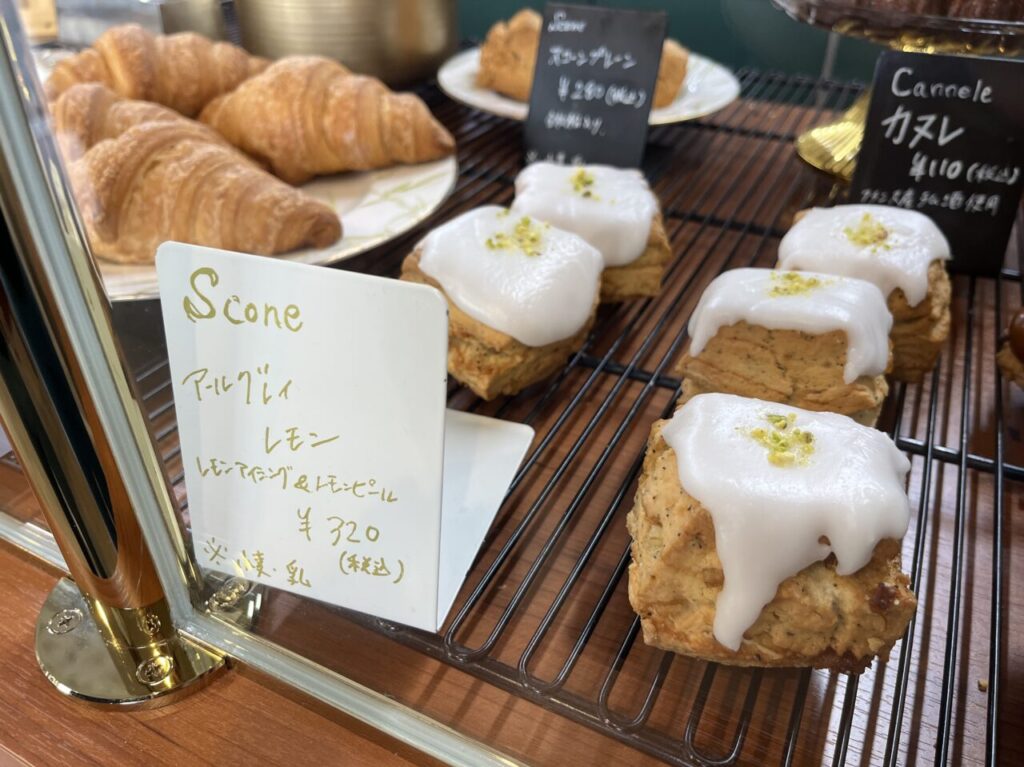 Scone
アールグレイ
レモン
レモンアイシング&レモンピール
¥320
(税込)
※ 乳
Scone
スコーンプレーン
¥280(税込)
Cannele
カヌレ
¥110(税込)
フランス産ラム酒使用